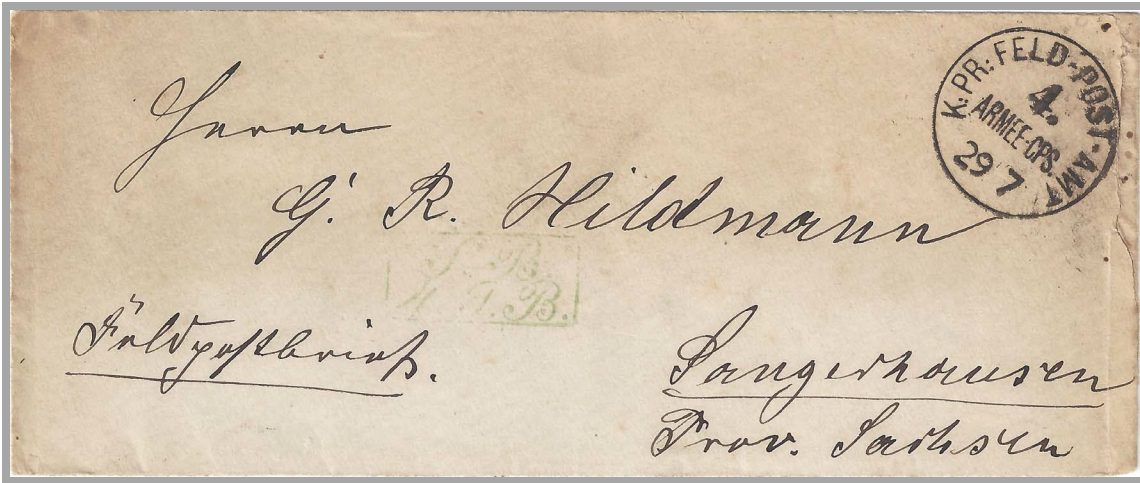 K: PR: FELD-POST-AMT
4.
ARMEE-CPS.
29 7
Herrn
G. R. Hildmann
Feldpostbrief.
Sangerhausen
Prov. Sachsen